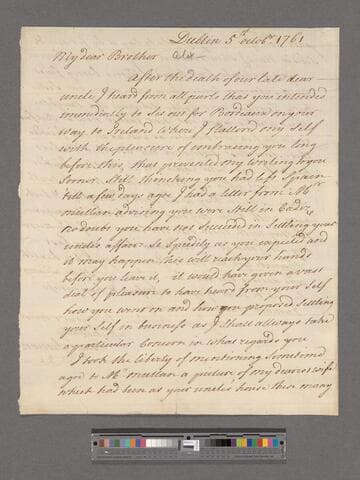 Dublin 5th octobr. 1761
My dear Brother Alex
After the death of our late dear
uncle I heard from all parts that you intended
immediatly to set out for Bordeaux on your
way to Ireland where I flattered my self
with the pleasure of embracing you long
before this, that prevented my writing you
sooner. Still thinking you had left Spain
till a few days ago I had a letter from Mr
mullan advising you were still in Cadiz
no doubt you have not succeed in settling your
uncles affairs so speedily as you expected and
it may happen this will reach your hands
before you leave it, it would have given a vast
deal of pleasure to have heard from your self
how you went on and how you proposed settling
your self in business as I shall allways take
a particular concern in what regards you
I took the liberty of mentioning sometime
ago to Mr mullan a picture of my dearest wife
which had been at your uncle's house these many